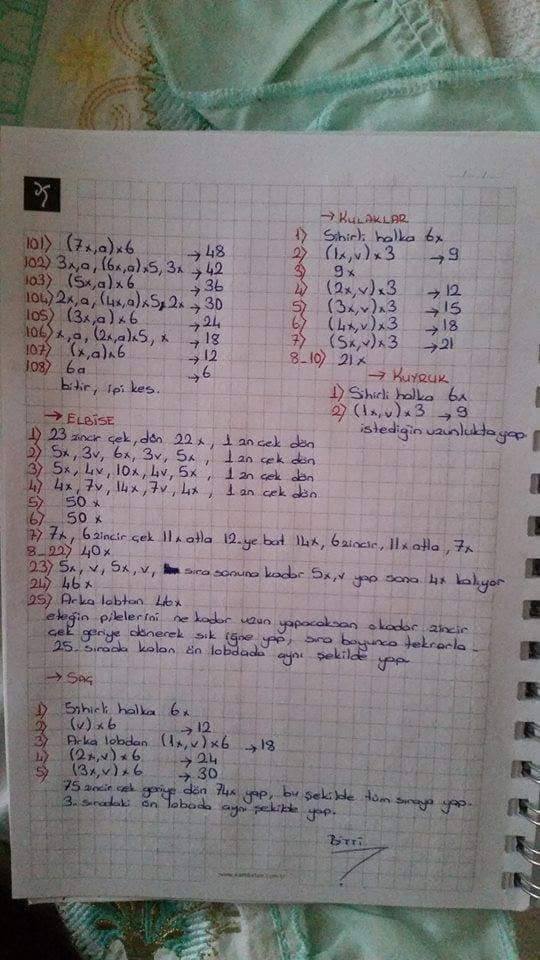 101) (7x,a)x6 → 48
102) 3x,a,(6x,a)x5,3x → 42
103) (5x,a)x6 → 36
104) 2x,a,(4x,a)x5,2x → 30
105) (3x,a)x6 → 24
106) x,a,(2x,a)x5,x → 18
107) (x,a)x6 → 12
108) 6a → 6
bitir, ipi kes.
→ KULAKLAR
1) Sihirli halka 6x
2) (1x,v)x3 → 9
3) 9x
4) (2x,v)x3 → 12
5) (3x,v)x3 → 15
6) (4x,v)x3 → 18
7) (5x,v)x3 → 21
8-10) 21x
→ KUYRUK
1) Sihirli halka 6x
2) (1x,v)x3 → 9
istediğin uzunlukta yap
→ ELBİSE
1) 23 zincir çek, dön 22x, 1 zn çek dön
2) 5x, 3v, 6x, 3v, 5x, 1 zn çek dön
3) 5x, 4v, 10x, 4v, 5x, 1 zn çek dön
4) 4x, 7v, 14x, 7v, 4x, 1 zn çek dön
5) 50x
6) 50x
7) 7x, 6 zincir çek 11x atla 12.ye bat 14x, 6 zincir, 11x atla, 7x
8-22) 40x
23) 5x, v, 5x, v, sıra sonuna kadar 5x,v yap sona 4x kalıyor
24) 46x
25) Arka lobtan 46x
eteğin pilelerini ne kadar uzun yapacaksan o kadar zincir
çek geriye dönerek sık iğne yap, sıra boyunca tekrarla.
25. sırada kalan ön lobdada aynı şekilde yap.
→ SAÇ
1) Sihirli halka 6x
2) (v)x6 → 12
3) Arka lobdan (1x,v)x6 → 18
4) (2x,v)x6 → 24
5) (3x,v)x6 → 30
75 zincir çek geriye dön 74x yap, bu şekilde tüm sıraya yap.
3. sıradaki ön lobada aynı şekilde yap.
BİTTİ